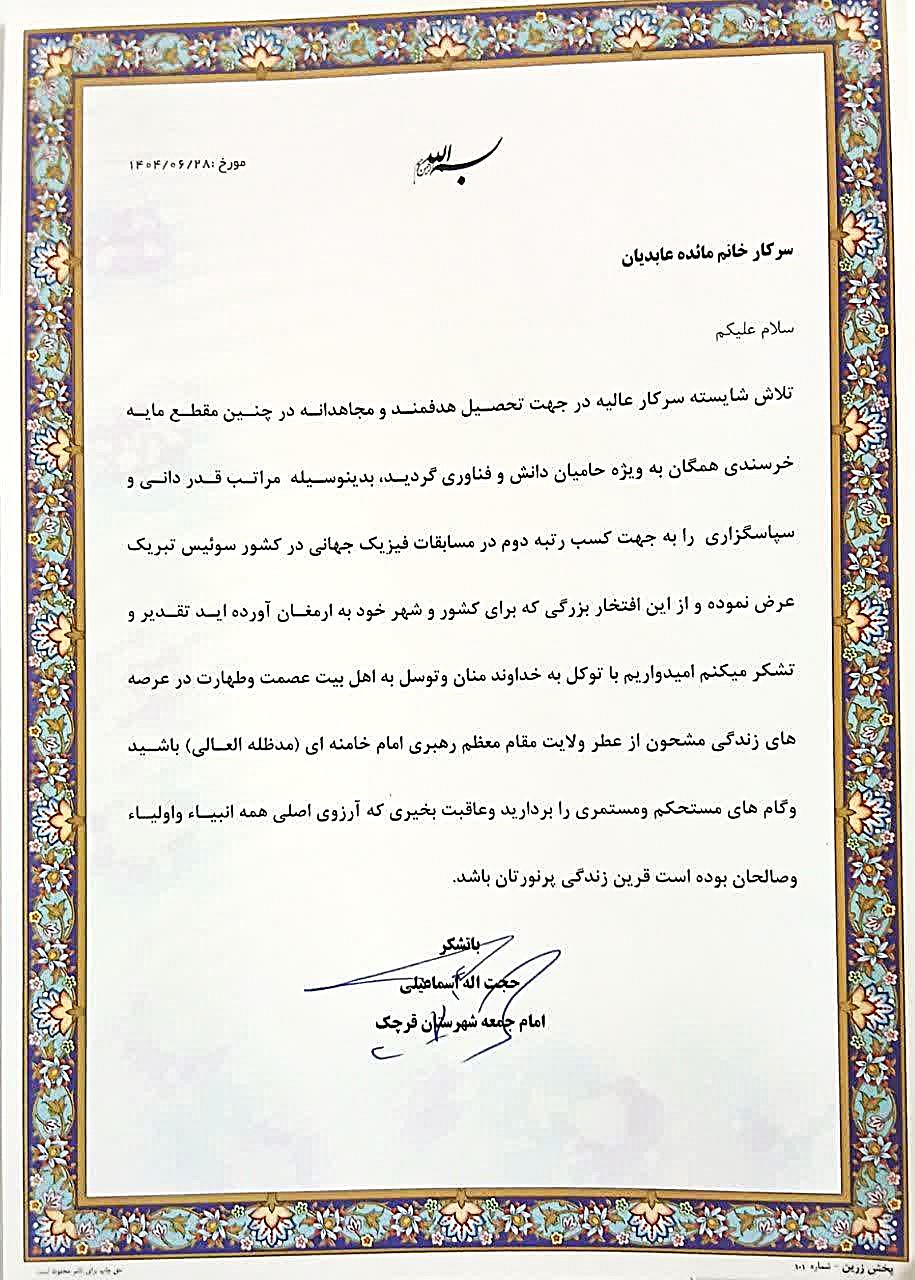 بسم الله الرحمن الرحیم
مورخ :۱۴۰۴/۰۶/۲۸
سرکار خانم مائده عابدیان
سلام علیکم
تلاش شایسته سرکار عالیه در جهت تحصیل هدفمند و مجاهدانه در چنین مقطع مایه
خرسندی همگان به ویژه حامیان دانش و فناوری گردید، بدینوسیله مراتب قدر دانی و
سپاسگزاری را به جهت کسب رتبه دوم در مسابقات فیزیک جهانی در کشور سوئیس تبریک
عرض نموده و از این افتخار بزرگی که برای کشور و شهر خود به ارمغان آورده اید تقدیر و
تشکر میکنم امیدواریم با توکل به خداوند منان وتوسل به اهل بیت عصمت وطهارت در عرصه
های زندگی مشحون از عطر ولایت مقام معظم رهبری امام خامنه ای (مدظله العالی) باشید
وگام های مستحکم ومستمری را بردارید وعاقبت بخیری که آرزوی اصلی همه انبیاء واولیاء
وصالحان بوده است قرین زندگی پرنورتان باشد.
باتشکر
حجت اله اسماعیلی
امام جمعه شهرستان قرچک
پخش زرین - شماره ۱۰۱
حق چاپ برای ناشر محفوظ است